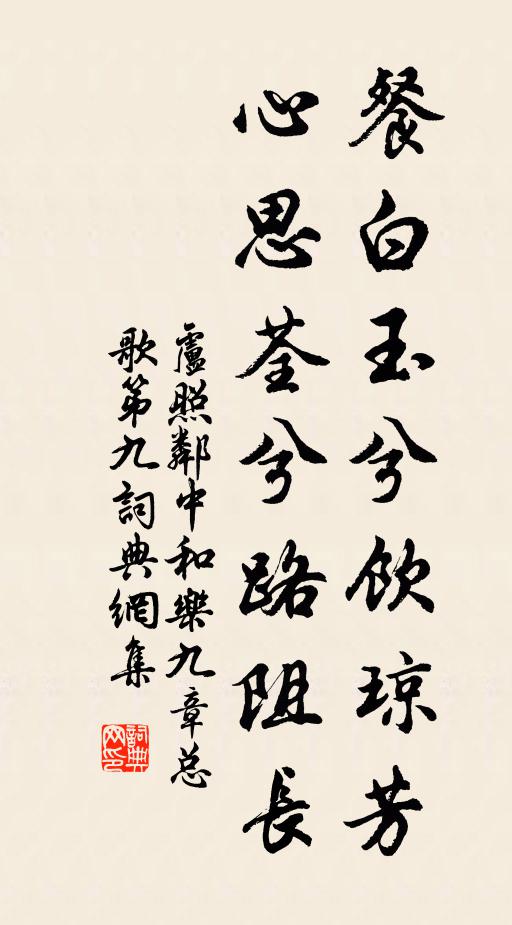 餐白玉兮飲瓊芳
心思荃兮路阻長
盧照鄰中和樂九章总
歌第九詞典網集
詞典网印